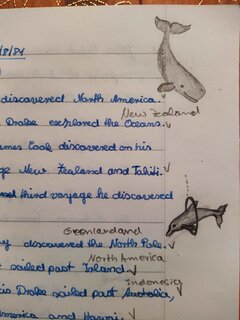 /8/81
discovered North America.
New Zealand
Drake explored the Oceans.
ames Cook discovered on his
ge New Zealand and Tahiti.
third voyage he discovered
Grönlandand
discovered the North Pole.
North America
sailed past Inland.
Indonesia
cis Drake sailed past Australia,
America and Hawai.